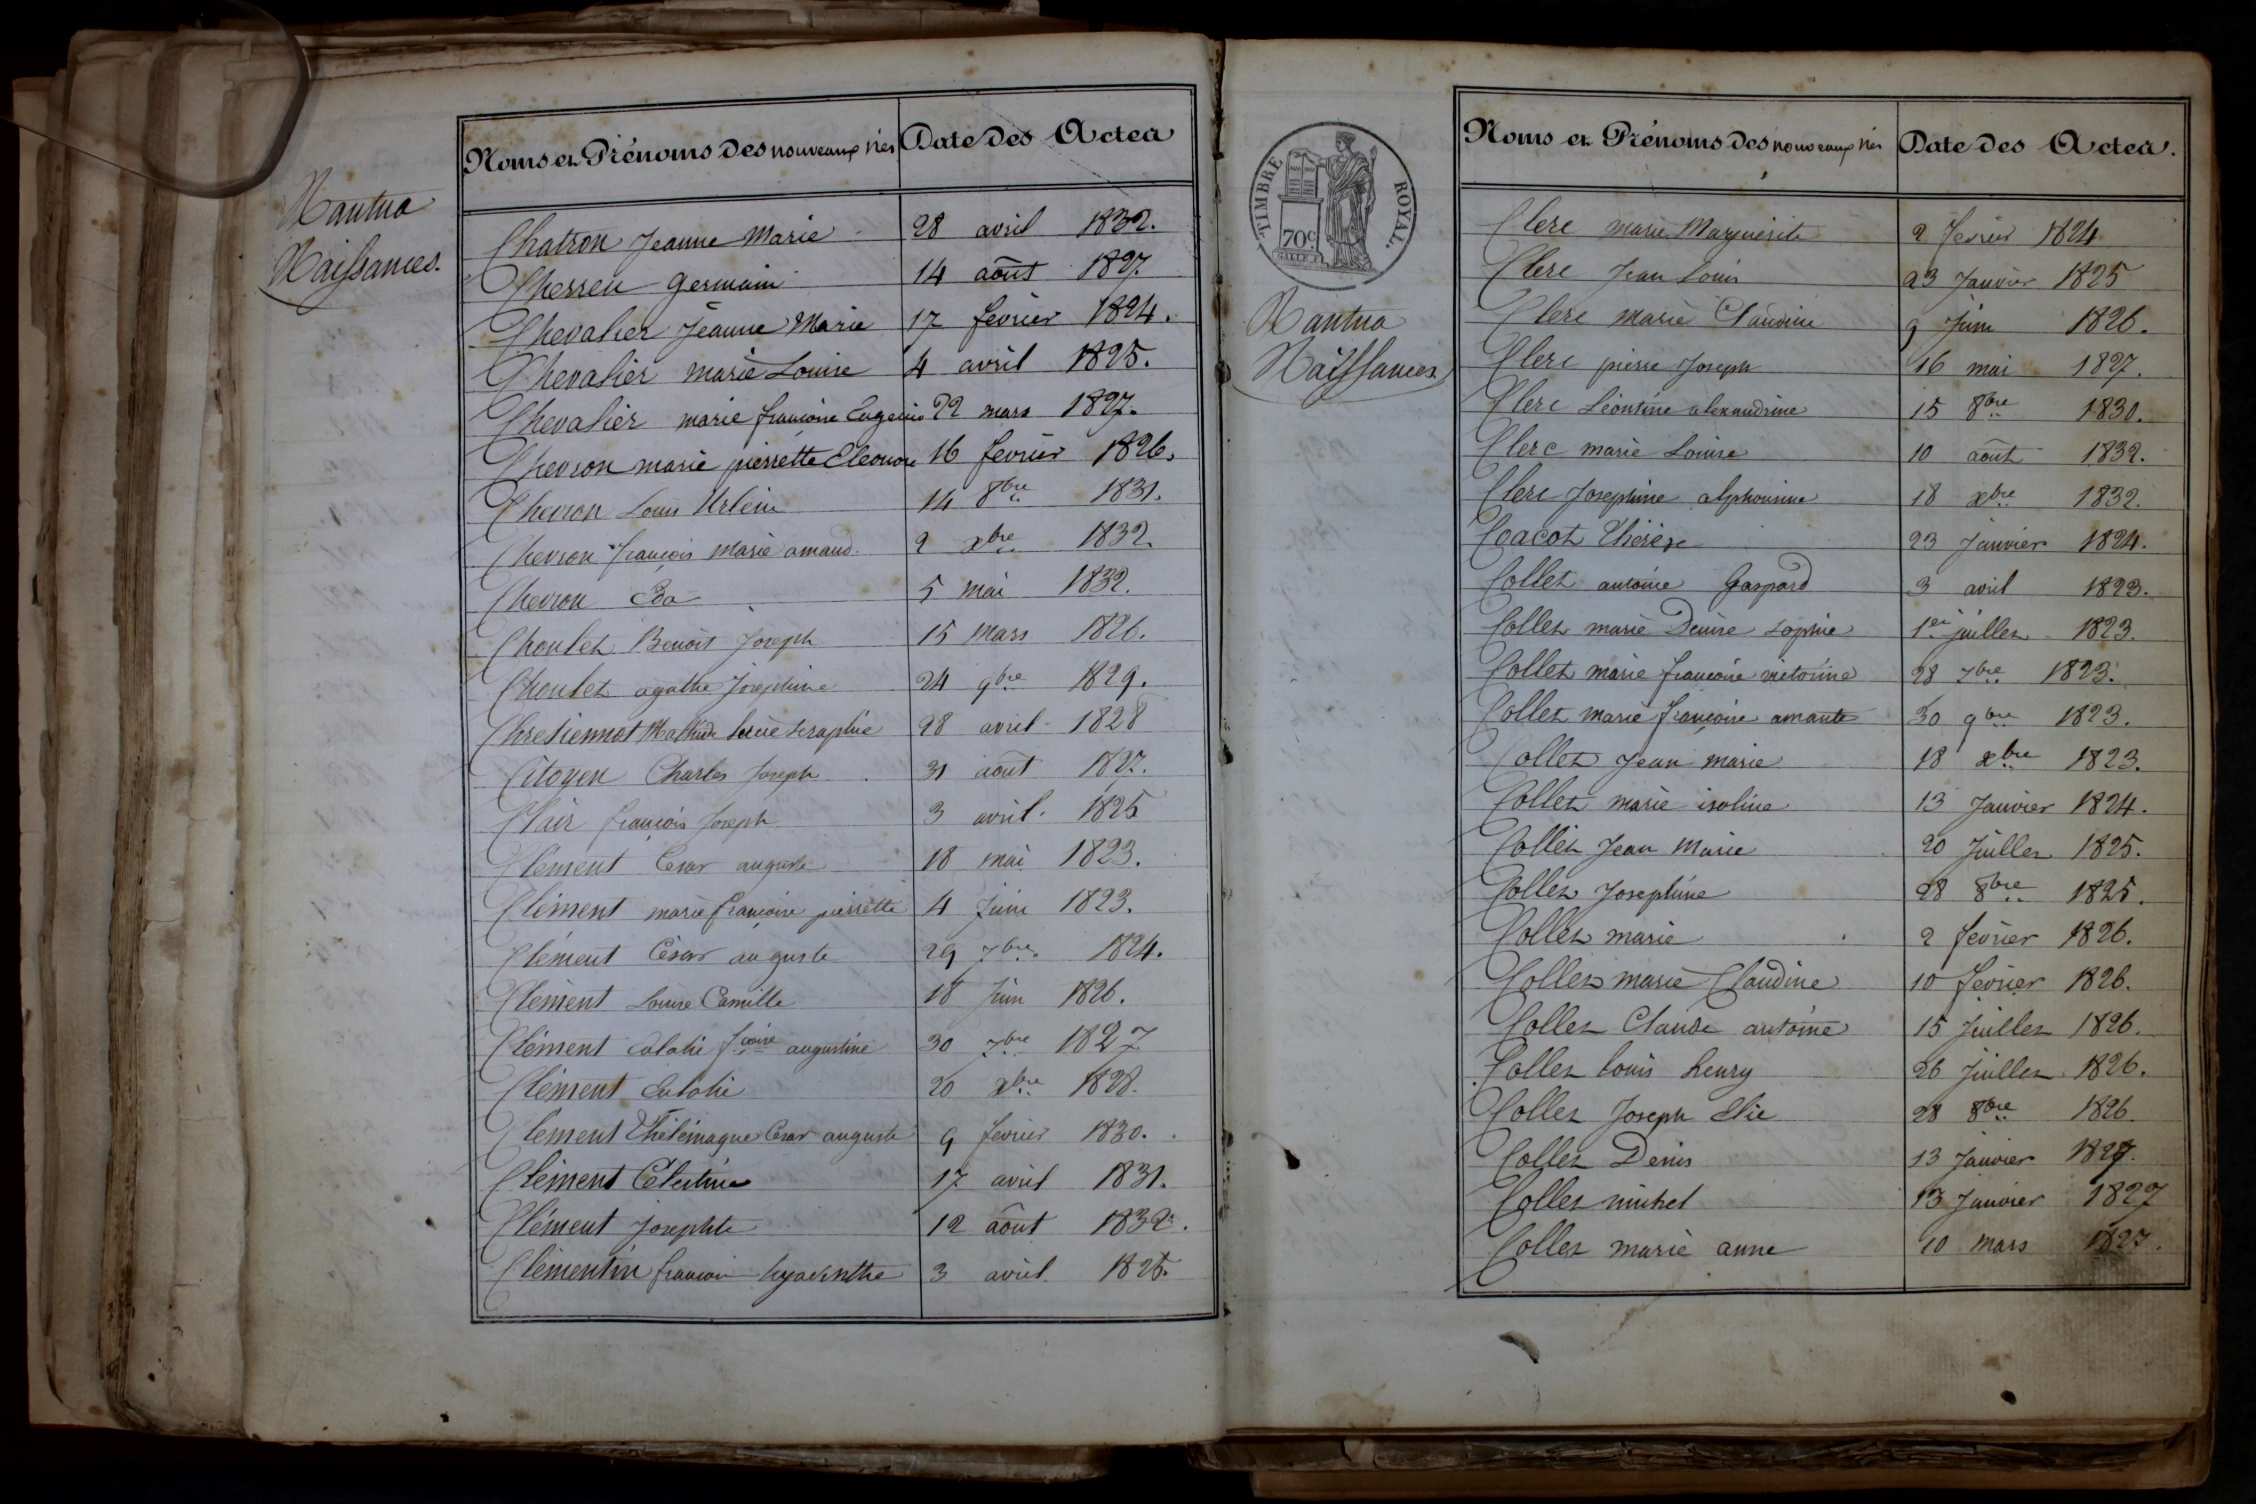 Nantua
Naissances.
Noms et Prénoms des nouveaux nés Date des Actes
Chatron Jeanne Marie 28 avril 1832.
Germain 14 août 1827
Chevalier Jeanne Marie 17 février 1824.
Chevalier marie Louise 4 avril 1825.
Chevalier marie françoise Eugenie 22 mars 1827.
Chevron marie pierrette Eleonore 16 fevrier 1826.
Chevron Louis Urbin 14 8bre 1831.
Chevron françois Marie amand 2 xbre 1832.
Chevron 5 mai 1832.
Choulet Benoit Joseph 15 Mars 1826.
Choulet agathe Josephine 24 9bre 1829.
Chrestiennot Mathilde Seraphie 28 avril 1828
Citoyen Charles Joseph 31 août 1827.
Clair françois Joseph 3 avril 1825
Clement Cesar auguste 18 mai 1823.
Clément marie françoise pierrette 4 Juin 1823.
Clément César auguste 29 7bre 1824.
Clement Louise Camille 18 Juin 1826.
Clément Eulalie fçoise augustine 30 7bre 1827
Clément Eulalie 20 xbre 1828.
Clement Thélémaque Cesar auguste 9 fevrier 1830.
Clément Célestine 17 avril 1831.
Clément Josephte 12 août 1832.
Clémentin françois hyacinthe 3 avril 1826.
TIMBRE ROYAL.
70c
Nantua
Naissances
Noms et Prénoms des nouveaux nés Date des Actes.
Clerc marie Marguerite 2 fevrier 1824
Clerc Jean Louis 23 Janvier 1825
Clerc marie Claudine 9 Juin 1826.
Clerc pierre Joseph 16 mai 1827.
Clerc Léontine alexandrine 15 8bre 1830.
Clerc marie Louise 10 août 1832.
Clerc Josephine alphonsine 18 xbre 1832.
Coacot Thérèse 23 Janvier 1824.
Collet antoine Gaspard 3 avril 1823.
Collet marie Denise sophie 1er juillet 1823.
Collet marie françoise victorine 28 7bre 1823.
Collet marie françoise amante 30 9bre 1823.
Collet Jean marie 18 xbre 1823.
Collet marie isoline 13 Janvier 1824.
Collet Jean Marie 20 Juillet 1825.
Collet Josephine 28 8bre 1825.
Collet marie 2 fevrier 1826.
Collet marie Claudine 10 fevrier 1826.
Collet Claude antoine 15 Juillet 1826.
Collet louis henry 26 Juillet 1826.
Collet Joseph Elie 28 8bre 1826
Collet Denis 13 Janvier 1827.
Collet michel 13 Janvier 1827
Collet marie anne 10 mars 1827.